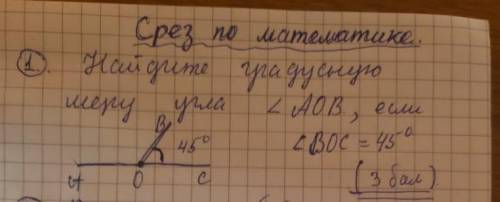 Срез по математике.
1. Найдите градусную
меру угла ∠AOB, если
B 45° ∠BOC = 45°
A O C (3 бал)